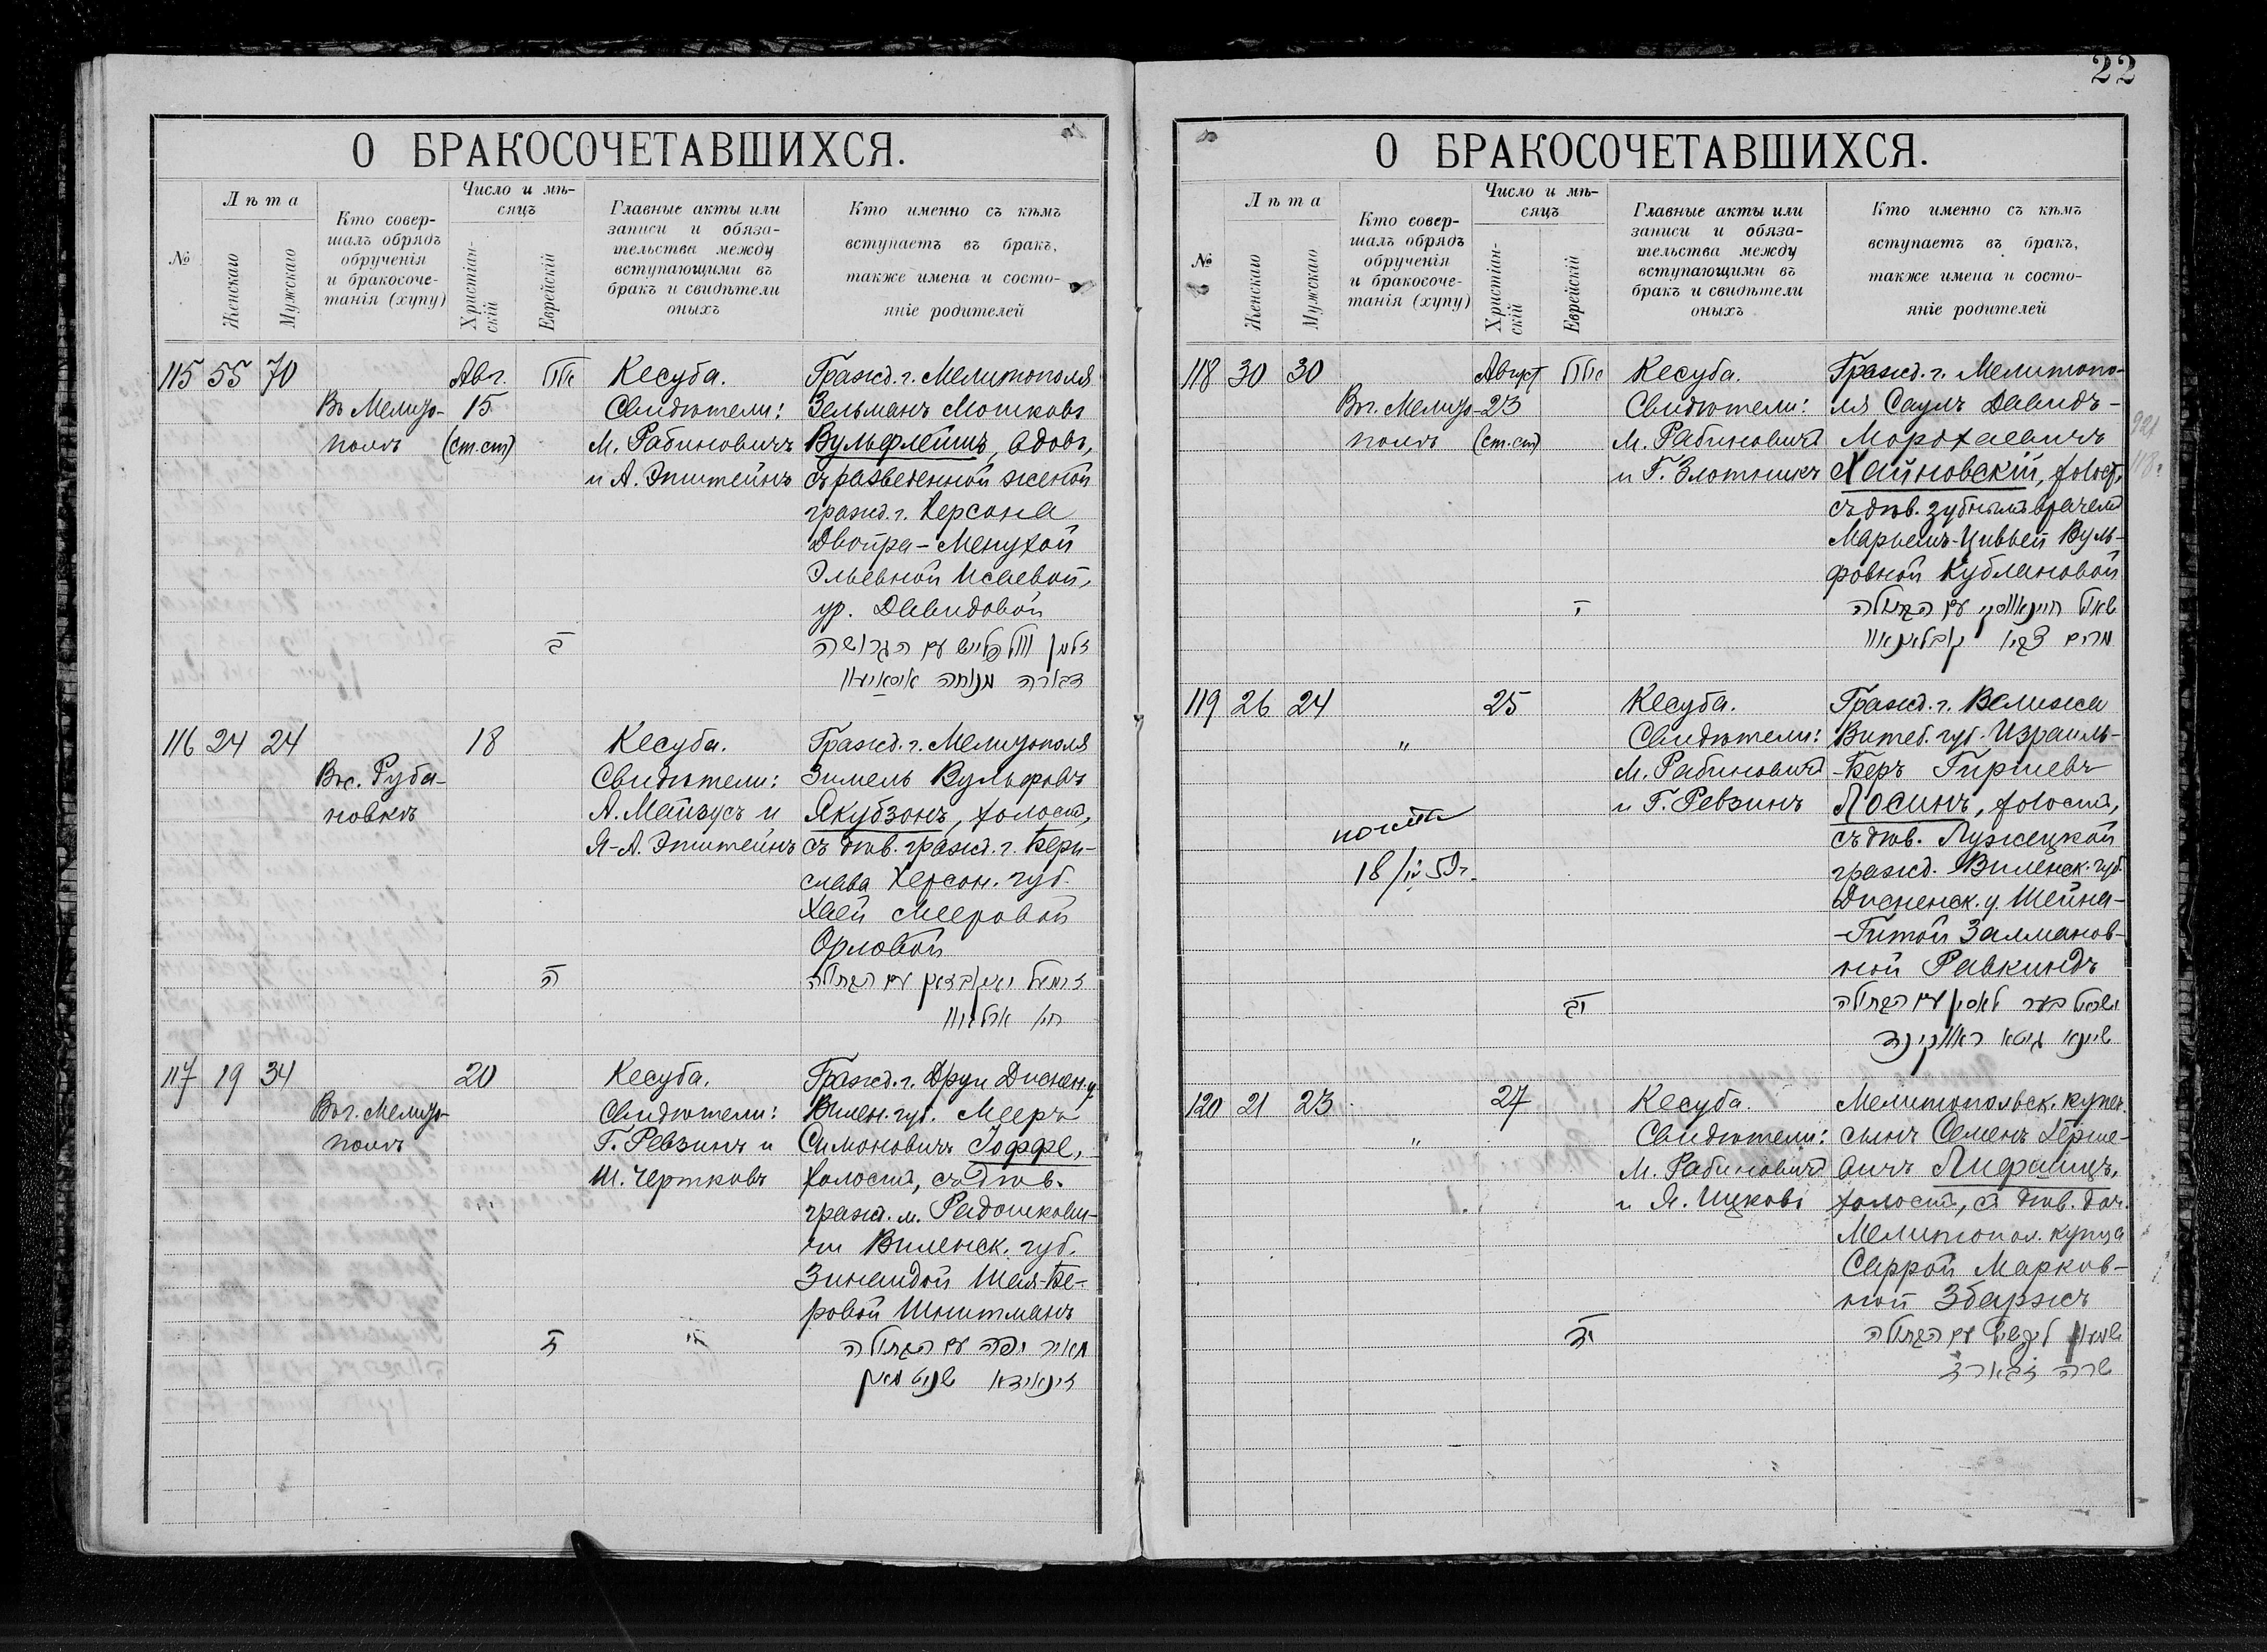 22
О БРАКОСОЧЕТАВШИХСЯ.
№
Лѣта
Женскаго
Мужскаго
Кто совер-
шалъ обрядъ
обрученія
и бракосоче-
танія (хупу)
Число и мѣ-
сяцъ
Христіан-
скій
Еврейскій
Главные акты или
записи и обяза-
тельства между
вступающими въ
бракъ и свидѣтели
оныхъ
Кто именно съ кѣмъ
вступаетъ въ бракъ,
также имена и состо-
яніе родителей
115 55 70
Въ Мелито-
полѣ
Авг.
15
(ст. ст)
Кесуба.
Свидѣтели:
М. Рабиновичъ
и А. Эпштейнъ
Гражд. г. Мелитополя
Зельманъ Мошковъ
Вульфлейшъ, вдовъ,
съ разведенной женой
гражд. г. Херсона
Двойра-Менухой
Эльевной Исаевой,
ур. Давидовой
ב
זלמן וולפלייש עם הגרושה
דבורה מנוחה איסאיעוו
116 24 24
Въ с. Руба-
новкѣ
18
Кесуба.
Свидѣтели:
А. Мейзусъ и
Я-А. Эпштейнъ
Гражд. г. Мелитополя
Зимель Вульфовъ
Якубзонъ, холост,
съ дѣв. гражд. г. Бери-
слава Херсон. губ.
Хаей Мееровой
Орловой
ה
זימעל יאקובזאן עם הבתולה
חי' ארלוו
117 19 34
Въ г. Мелито-
полѣ
20
Кесуба.
Свидѣтели:
Г. Ревзинъ и
Ш. Чертковъ
Гражд. г. Друи Диснен. у.
Вилен. губ. Мееръ
Симоновичъ Іоффе,
холостъ, съ дѣв.
гражд. м. Радошкови-
чи Виленск. губ.
Зинаидой Шая-Бе-
ровой Шнитманъ
ז
מאיר יפה עם הבתולה
זינאידא שניטמאן
О БРАКОСОЧЕТАВШИХСЯ.
№
Лѣта
Женскаго
Мужскаго
Кто совер-
шалъ обрядъ
обрученія
и бракосоче-
танія (хупу)
Число и мѣ-
сяцъ
Христіан-
скій
Еврейскій
Главные акты или
записи и обяза-
тельства между
вступающими въ
бракъ и свидѣтели
оныхъ
Кто именно съ кѣмъ
вступаетъ въ бракъ,
также имена и состо-
яніе родителей
118 30 30
Въ г. Мелито-
полѣ
Август
23
(ст. ст)
Кесуба.
Свидѣтели:
М. Рабиновичъ
и Г. Злотникъ
Гражд. г. Мелитопо-
ля Саулъ Давидъ-
Мордхаевичъ
Хайновскій, холост,
съ дѣв. зубнымъ врачемъ
Марьемъ-Цивьей Вуль-
фовной Кублановой
י
שאול חיינאווסקי עם הבתולה
מרים צביי' קובלאנאוו
119 26 24
"
25
Кесуба.
Свидѣтели:
М. Рабиновичъ
и Г. Ревзинъ
18/IX 59 г.
Гражд. г. Велижа
Витеб. губ. Израиль-
-Беръ Гиршевъ
Лосинъ, холостъ,
съ дѣв. Лужецкой
гражд. Виленск. губ.
Дисненск. у. Шейна-
-Гитой Залманов-
ной Равкиндъ
יב
ישראל בער לאסין עם הבתולה
שיינא גיטא ראווקינד
120 21 23
"
27
Кесуба.
Свидѣтели:
М. Рабиновичъ
и Я. Ицковъ
Мелитопольск. купеч.
сынъ Семенъ Герше-
вичъ Лифшицъ,
холостъ, съ дѣв. доч.
Мелитопол. купца
Саррой Марков-
ной Збаржъ
יד
שמעון ליפשיץ עם הבתולה
שרה זבארז